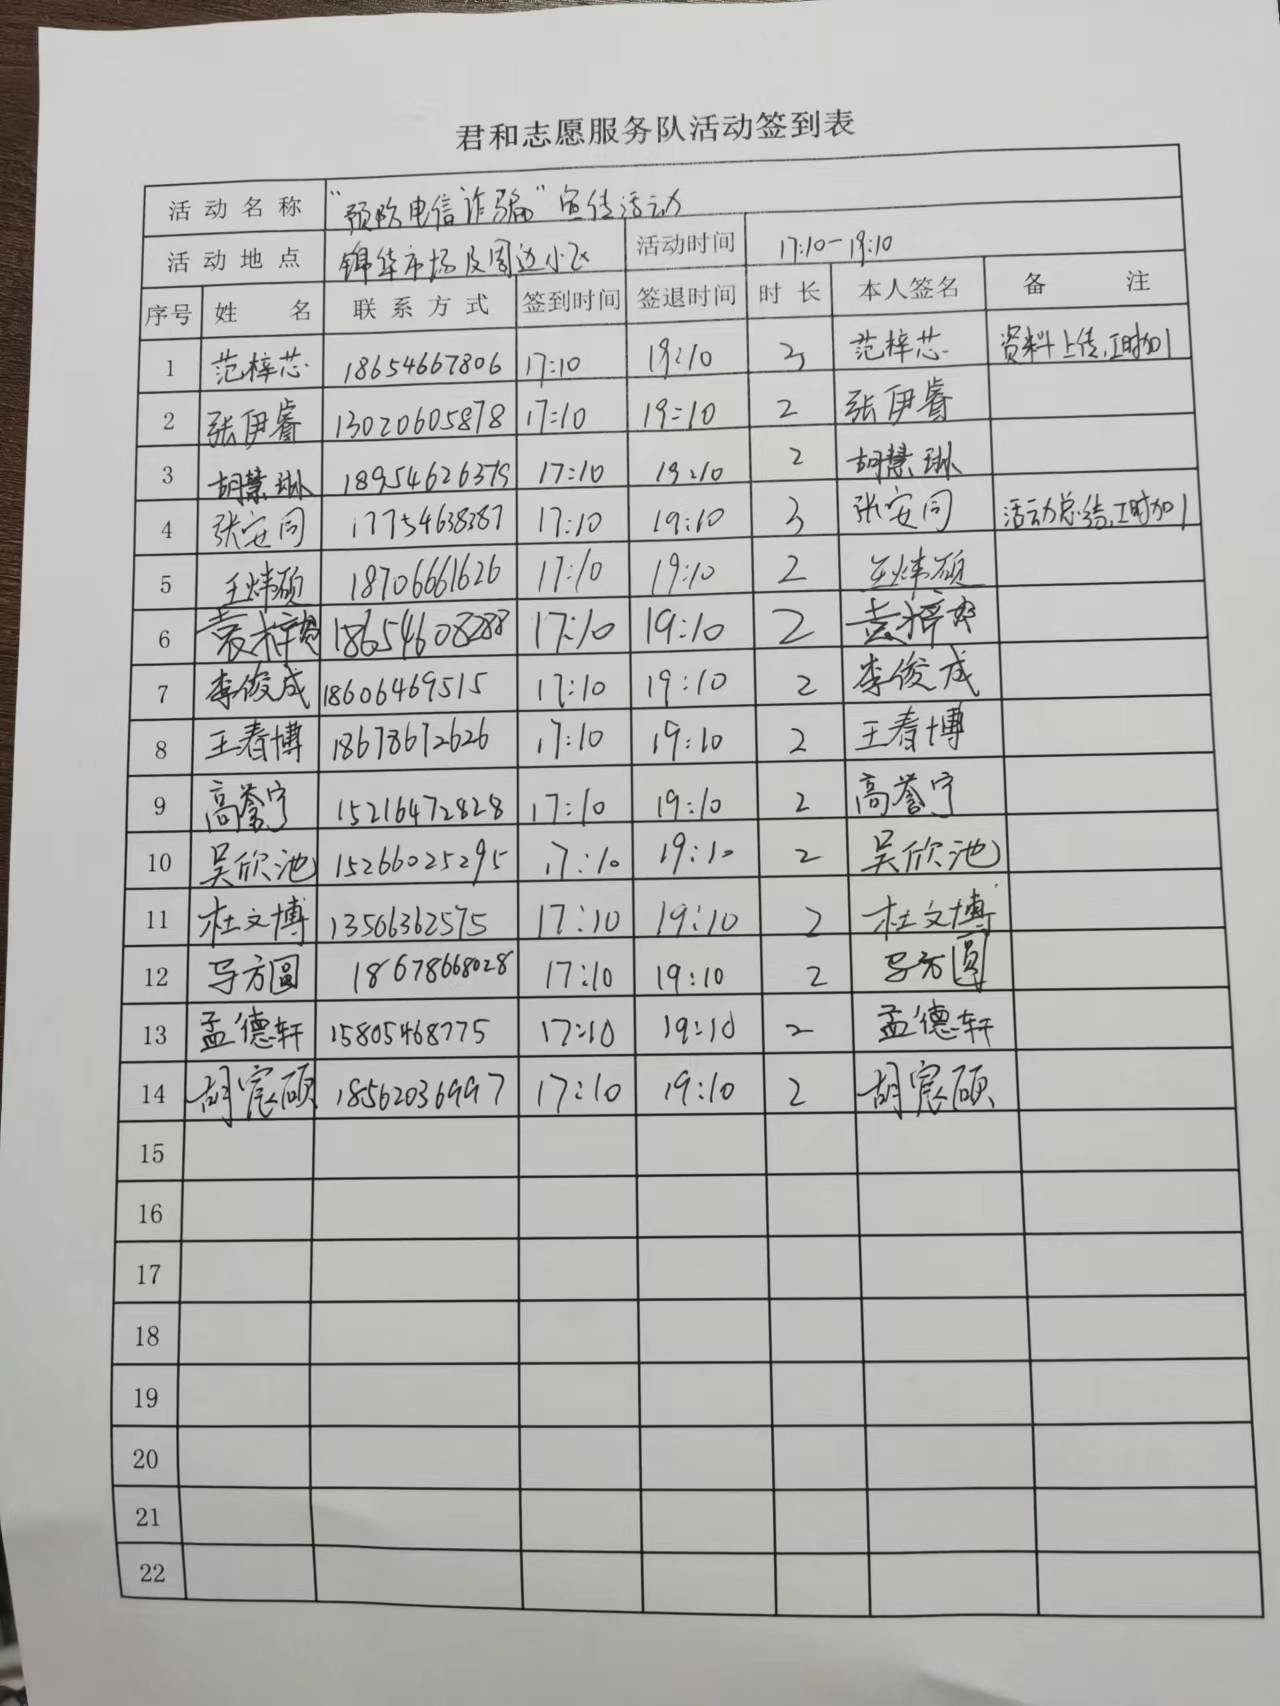 君和志愿服务队活动签到表
活动名称 "预防电信诈骗"宣传活动
活动地点 锦华市场及周边小区 活动时间 17:10-19:10
序号 姓名 联系方式 签到时间 签退时间 时长 本人签名 备注
1 范梓芯 18654667806 17:10 19:10 3 范梓芯 资料上传,工时加1
2 张伊睿 13020605878 17:10 19:10 2 张伊睿
3 胡慧琳 18954626379 17:10 19:10 2 胡慧琳
4 张安同 17754638387 17:10 19:10 3 张安同 活动总结,工时加1
5 王炜硕 18706661626 17:10 19:10 2 王炜硕
6 袁梓 18654608288 17:10 19:10 2 袁梓
7 李俊成 18606469515 17:10 19:10 2 李俊成
8 王春博 18678672626 17:10 19:10 2 王春博
9 高誉宁 15216472828 17:10 19:10 2 高誉宁
10 吴欣池 15266025295 17:10 19:10 2 吴欣池
11 杜文博 13506362575 17:10 19:10 2 杜文博
12 马方圆 18678668028 17:10 19:10 2 马方圆
13 孟德轩 15805468775 17:10 19:10 2 孟德轩
14 胡宸硕 18562036997 17:10 19:10 2 胡宸硕
15
16
17
18
19
20
21
22